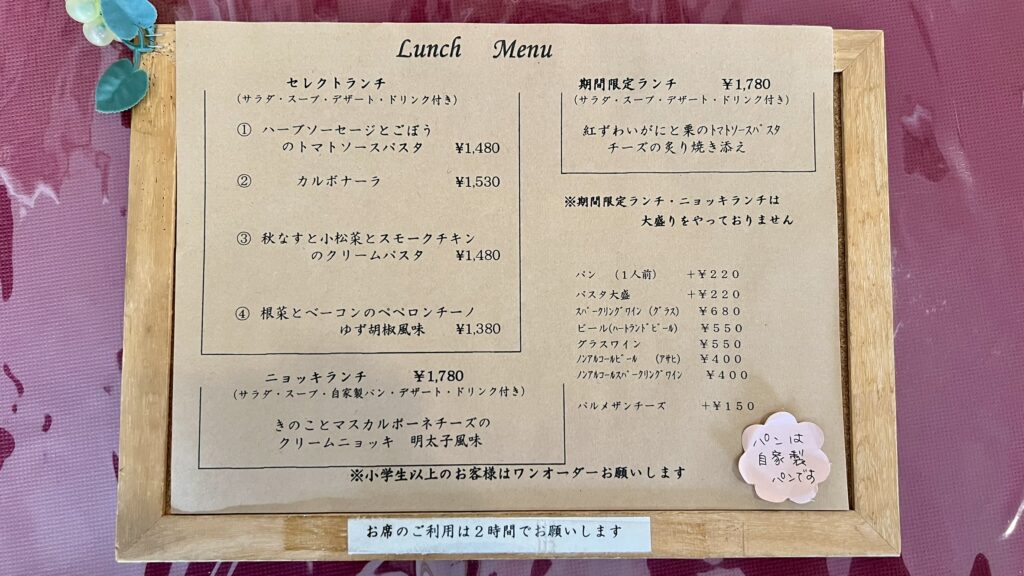 Lunch Menu
セレクトランチ
(サラダ・スープ・デザート・ドリンク付き)
① ハーブソーセージとごぼう
のトマトソースパスタ ¥1,480
② カルボナーラ ¥1,530
③ 秋なすと小松菜とスモークチキン
のクリームパスタ ¥1,480
④ 根菜とベーコンのペペロンチーノ
ゆず胡椒風味 ¥1,380
ニョッキランチ ¥1,780
(サラダ・スープ・自家製パン・デザート・ドリンク付き)
きのことマスカルポーネチーズの
クリームニョッキ 明太子風味
期間限定ランチ ¥1,780
(サラダ・スープ・デザート・ドリンク付き)
紅ずわいがにと栗のﾄﾏﾄｿｰｽﾊﾟｽﾀ
チーズの炙り焼き添え
※期間限定ランチ・ニョッキランチは
大盛りをやっておりません
パン (1人前) +¥220
パスタ大盛 +¥220
ｽﾊﾟｰｸﾘﾝｸﾞﾜｲﾝ (ｸﾞﾗｽ) ¥680
ビール(ﾊｰﾄﾗﾝﾄﾞﾋﾞｰﾙ) ¥550
グラスワイン ¥550
ﾉﾝｱﾙｺｰﾙﾋﾞｰﾙ (ｱｻﾋ) ¥400
ﾉﾝｱﾙｺｰﾙｽﾊﾟｰｸﾘﾝｸﾞﾜｲﾝ ¥400
パルメザンチーズ +¥150
パンは
自家製
パンです
※小学生以上のお客様はワンオーダーお願いします
お席のご利用は2時間でお願いします